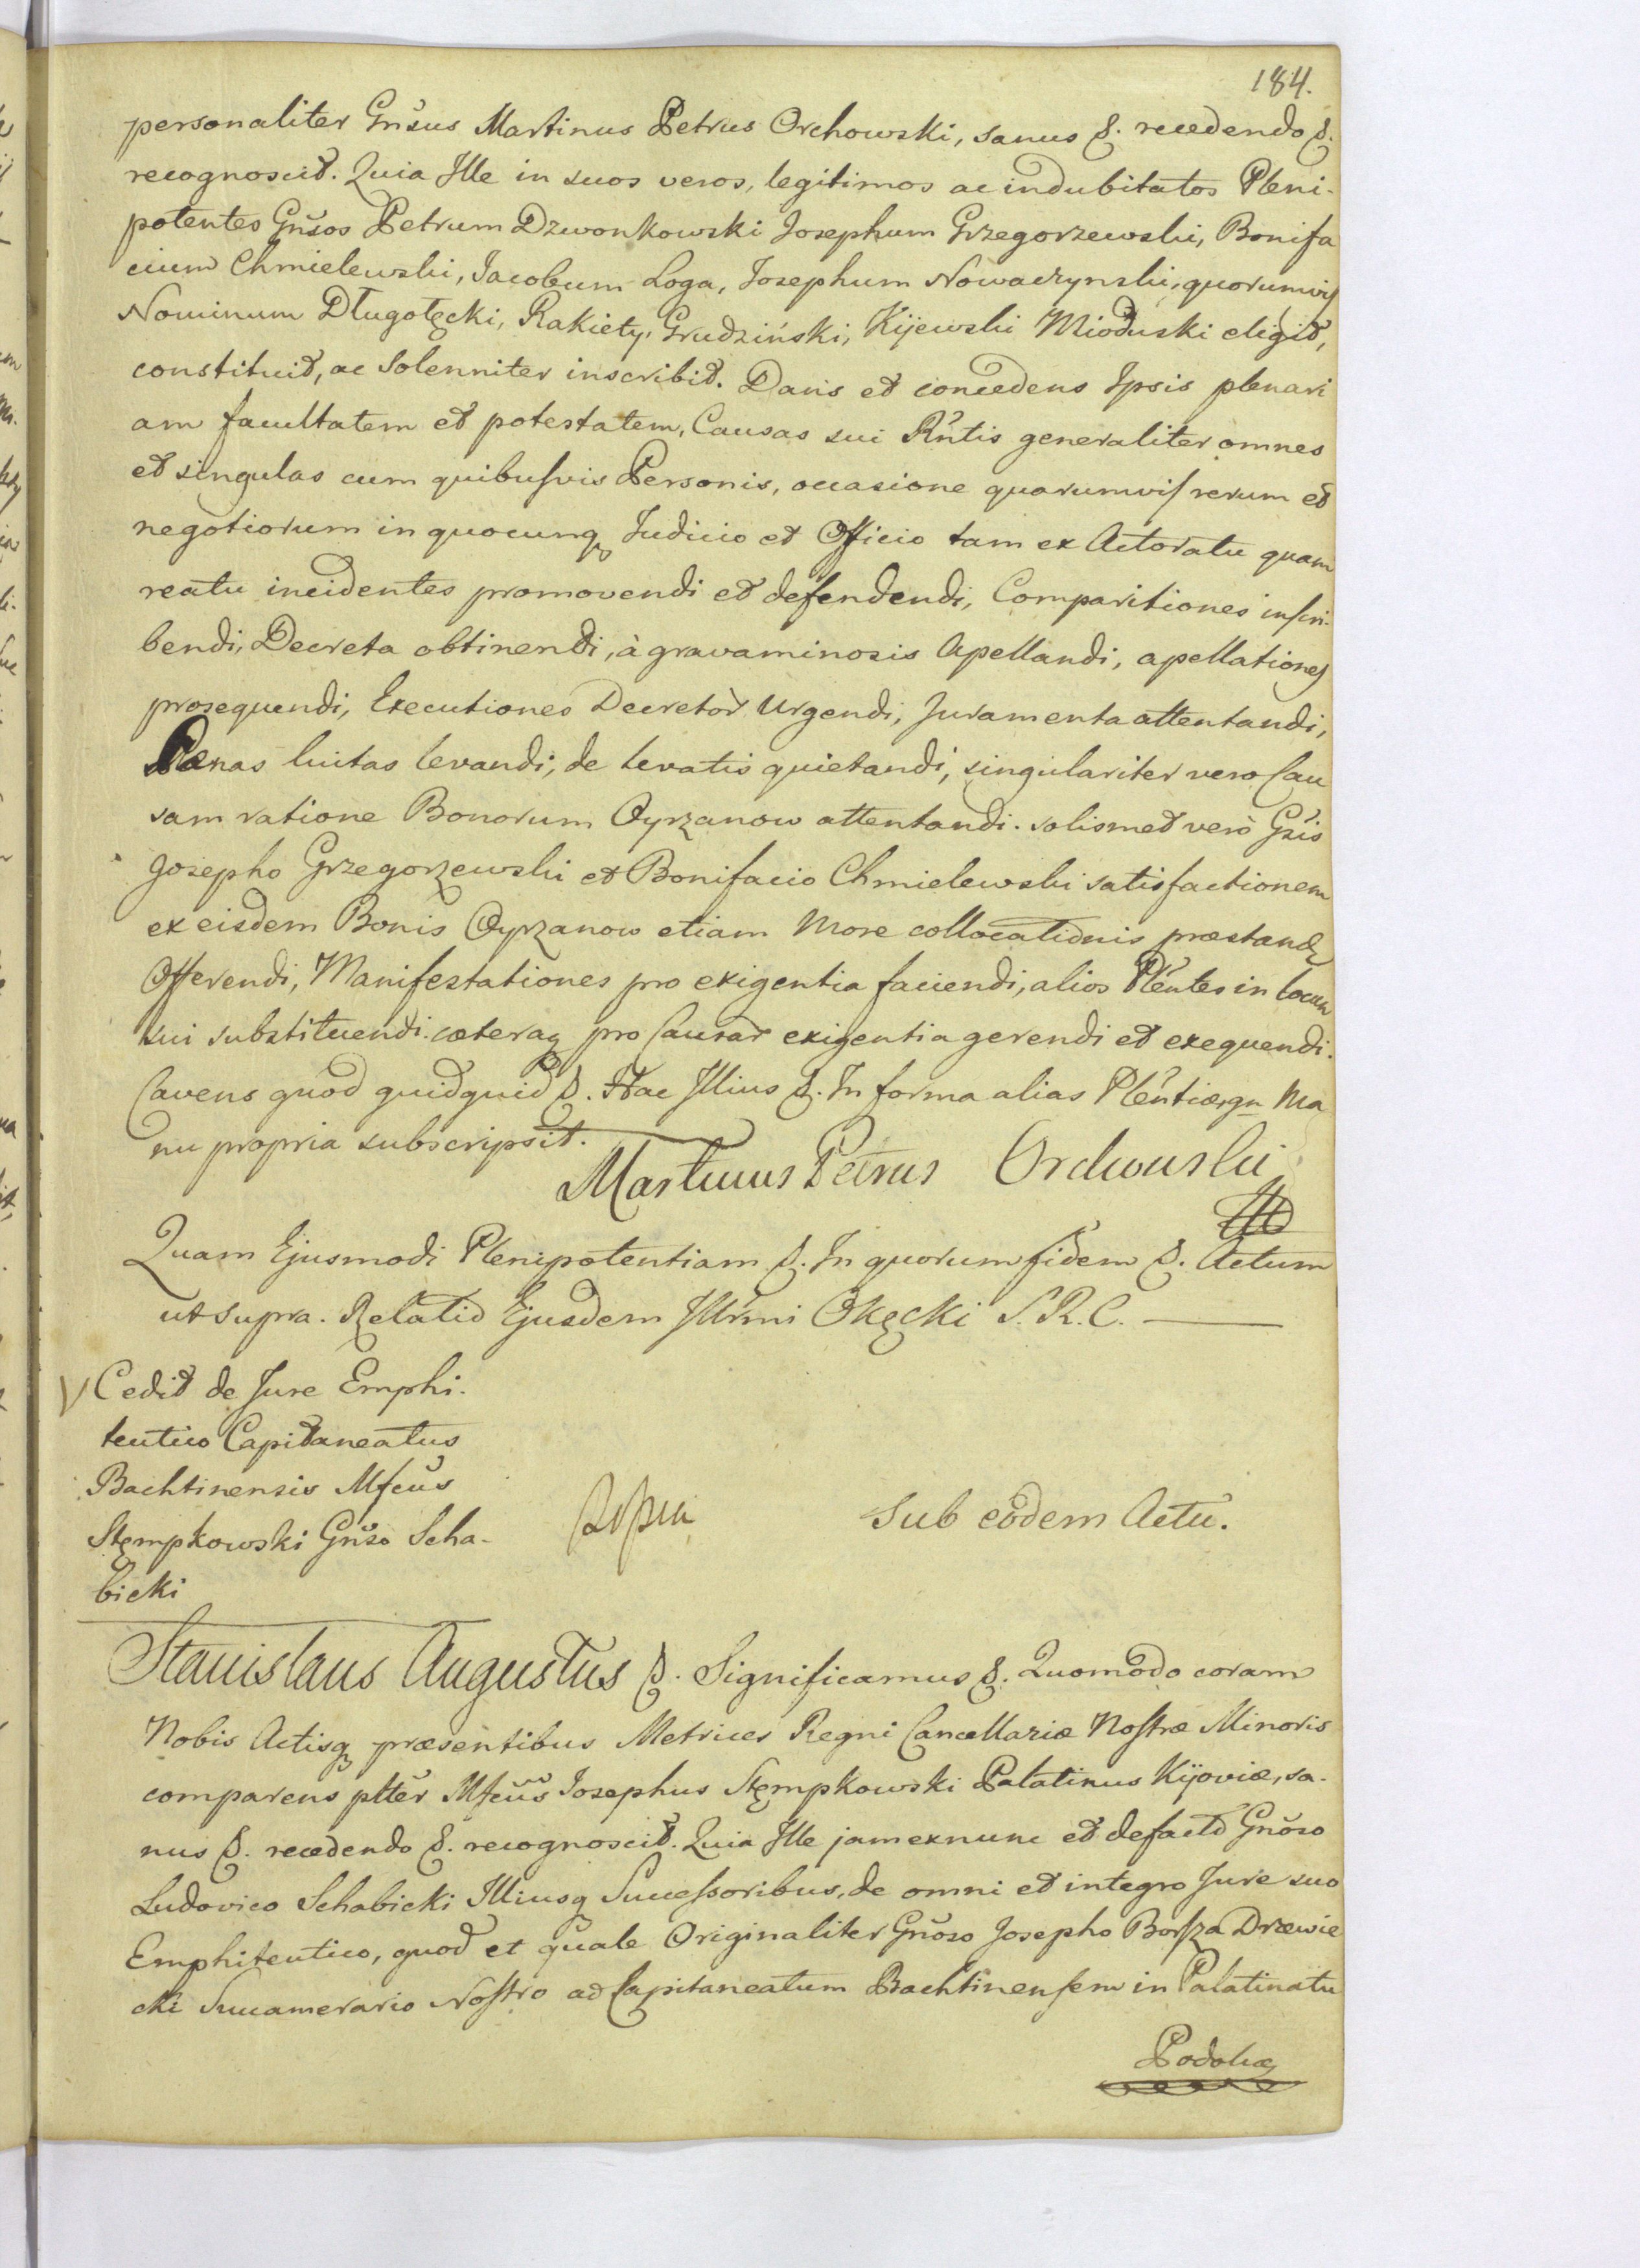 184.
personaliter Gnsus Martinus Petrus Orchowski, sanus &. recedendo &.
recognoscit. Quia Ille in suos veros, legitimos ac indubitatos Pleni-
potentes Gnsos Petrum Dzwonkowski Josephum Grzegorzewski, Bonifa
cium Chmielewski, Jacobum Loga, Josephum Nowaczynski, quorumvis
Nominum Długołęcki, Rakiety, Grudziński, Kijewski Mioduski eligit,
constituit, ac Solenniter inscribit. Dans et concedens Ipsis plenari
am facultatem et potestatem, Causas sui Rntis generaliter omnes
et singulas cum quibusvis Personis, occasione quarumvis rerum et
negotiorum in quocunq Judicio et Officio tam ex Actoratu quam
reatu incidentes promovendi et defendendi, Comparitiones inscri-
bendi, Decreta obtinendi, à gravaminosis Apellandi, apellationes
prosequendi, Executiones Decretor Urgendi, Juramenta attentandi,
Pænas luitas levandi, de levatis quietandi, singulariter vero Cau
sam ratione Bonorum Oyrzanow attentandi. solismet verò Gsis
Josepho Grzegorzewski et Bonifacio Chmielewski satisfactionem
ex eisdem Bonis Oyrzanow etiam More collocationis præstandæ
Offerendi, Manifestationes pro exigentia faciendi, alios Plentes in locum
sui substituendi. cæteraq pro Causar exigentia gerendi et exequendi.
Cavens quod quidquid &. Hac Illius &. In forma alias Plentiæ, qu Ma
nu propria subscripsit.
Martinus Petrus Orchowski
Quam Ejusmodi Plenipotentiam &. In quorum fidem &. Actum
ut supra. Relatio Ejusdem Illrmi Okęcki S. R. C.
Cedit de Jure Emphi-
teutico Capitaneatus
Bachtinensis Mfcus
Stępkowski Gnso Scha-
bicki
Sub eodem Actu.
Stanislaus Augustus &. Significamus &. Quomodo coram
Nobis Actisq præsentibus Metrices Regni Cancellariæ Nostræ Minoris
comparens plter Mfcus Josephus Stęmpkowski Palatinus Kijoviæ, sa-
nus &. recedendo &. recognoscit. Quia Ille jam exnunc et defacto Gnoso
Ludovico Schabicki Illiusq Successoribus, de omni et integro Jure suo
Emphiteutico, quod et quale Originaliter Gnoso Josepho Borsza Drzewie
cki Succamerario Nostro ad Capitaneatum Bachtinensem in Palatinatu
Podoliæ